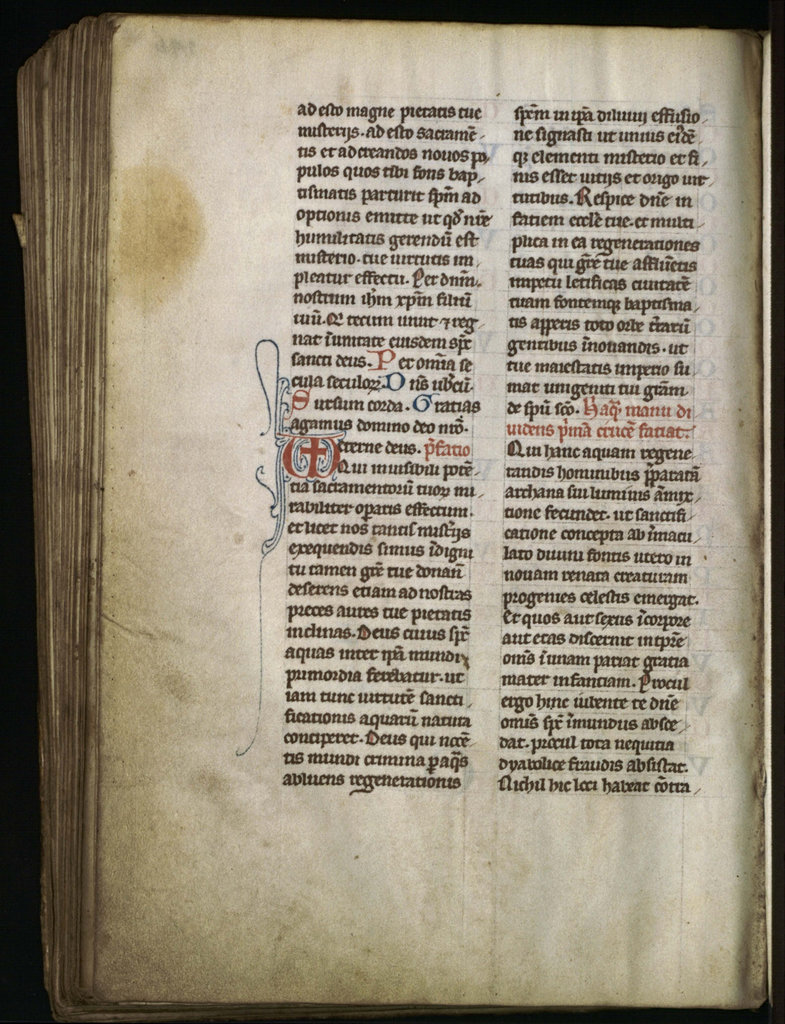 ad esto magne pietatis tue
misterijs. ad esto sacramē-
tis et ad creandos nouos po-
pulos quos tibi fons bap-
tismatis parturit sp̄m ad
optionis emitte ut qđ nr̄e
humilitatis gerendū est
misterio. tue uirtutis im-
pleatur effectu. Per dn̄m.
nostrum ih̄m xp̄m filiū
tuū. Q tecum uiuit ⁊ reg-
nat ī unitate eiusdem sp̄c
sancti deus. Per om̄ia se
cula seculoꝝ. Dn̄s ub̄cū
Sursum corda. Gratias
agamus domino deo nr̄o.
eterne deus. p̄fatio
Qui inuisibili potē-
tia sacramentoꝝ tuoꝝ mi-
rabiliter op̄aris effectum.
et licet nos tantis mist̄ijs
exequendis simus īdigni
tu tamen grē tue donan̄
deserens etiam ad nostras
preces aures tue pietatis
inclinas. Deus cuius sp̄c
aquas inter ip̄a mundi
primordia ferebatur. ut
iam tunc uirtutē sancti-
ficationis aquarū natura
conciperet. Deus qui nocē-
tis mundi crimina p aq̄s
abluens regenerationis
sp̄em in ip̄a diluuij effusio-
ne signasti ut unius eidē-
qꝫ elementi misterio et fi-
nis esset uitijs et origo uir-
tutibus. Respice dn̄e in
fatiem eccl̄e tue. et multi-
plica in ea regenerationes
tuas qui grē tue affluētis
impetu letificas ciuitatē
tuam fontemqꝫ baptisma-
tis apperis toto orbe t̄rarū
gentibus īnouandis. ut
tue maiestatis imperio su-
mat unigeniti tui gr̄am
de sp̄u sc̄o. Haq̄ manu di
uidens p̄ma crucē faciat.
Qui hanc aquam regene-
randis hominibus p̄paratā
archana sui luminis āmix-
tione fecundet. ut sanctifi-
catione concepta ab īmacu-
lato diuini fontis utero in
nouam renata creaturam
progenies celestis emergat.
Et quos aut sexus ī corpore
aut etas discernit in tp̄re
om̄s ī unam pariat gratia
mater infantiam. Procul
ergo hinc iubente te dn̄e
omnis sp̄c īmundus absce-
dat. procul tota nequitia
dyabolice fraudis absistat.
Nichil hic loci habeat cōtra-